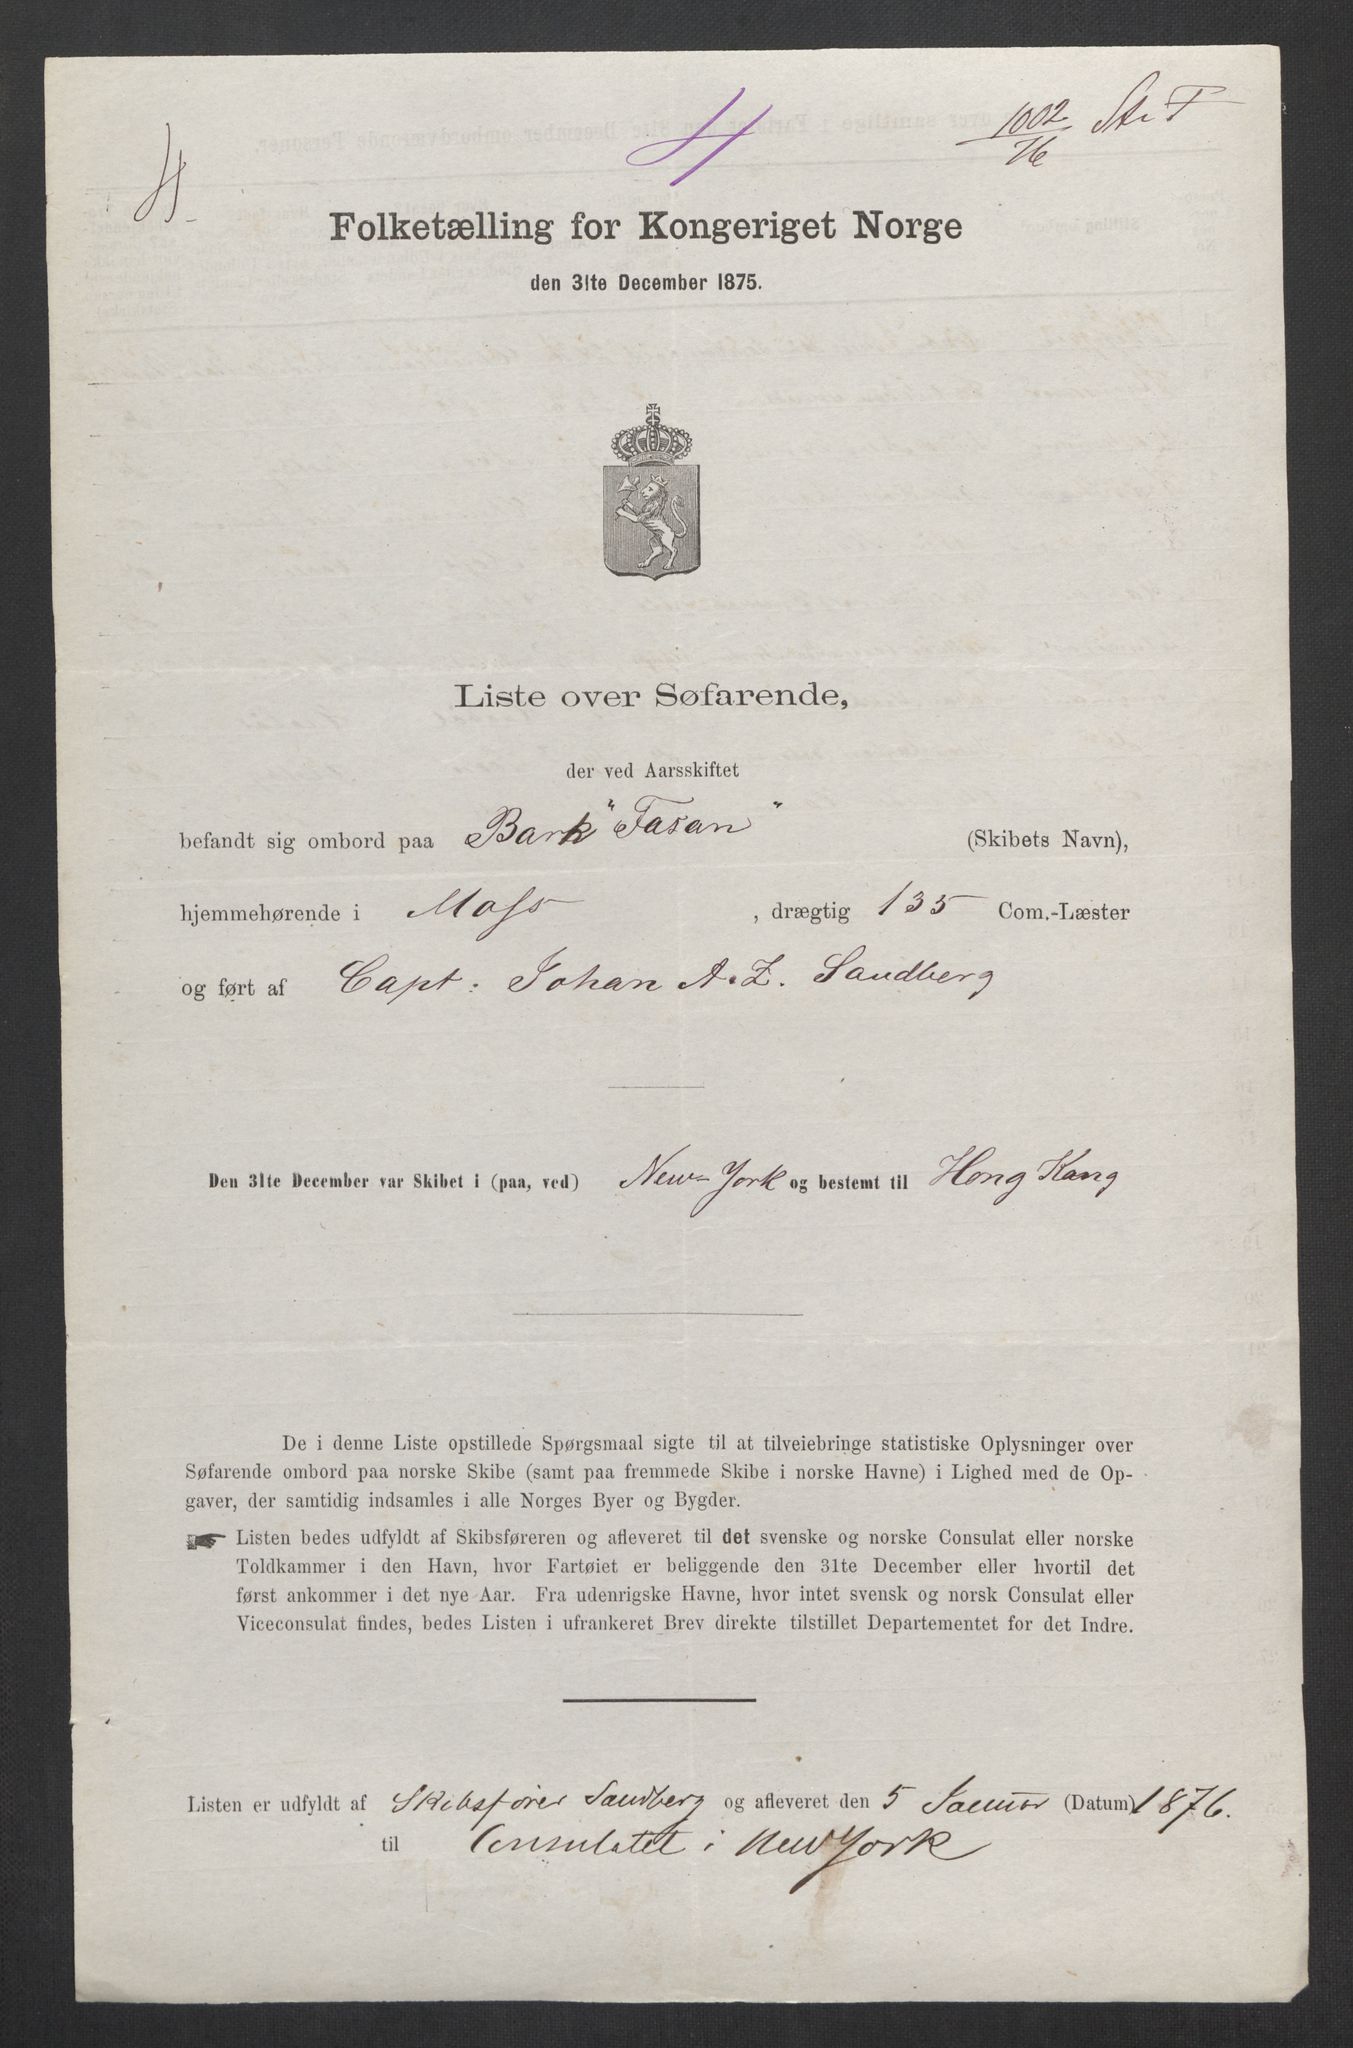 H.
H
1002/76 St. T
Folketælling for Kongeriget Norge
den 31te December 1875.
Liste over Søfarende,
der ved Aarsskiftet
befandt sig ombord paa Bark "Fasan" (Skibets Navn),
hjemmehørende i Moss, drægtig 135 Com.-Læster
og ført af Capt. Johan A. Z. Sandberg
Den 31te December var Skibet i (paa, ved) New-York og bestemt til Hong Kang
De i denne Liste opstillede Spørgsmaal sigte til at tilveiebringe statistiske Oplysninger over
Søfarende ombord paa norske Skibe (samt paa fremmede Skibe i norske Havne) i Lighed med de Op-
gaver, der samtidig indsamles i alle Norges Byer og Bygder.
☛ Listen bedes udfyldt af Skibsføreren og afleveret til det svenske og norske Consulat eller norske
Toldkammer i den Havn, hvor Fartøiet er beliggende den 31te December eller hvortil det
først ankommer i det nye Aar. Fra udenrigske Havne, hvor intet svensk og norsk Consulat eller
Viceconsulat findes, bedes Listen i ufrankeret Brev direkte tilstillet Departementet for det Indre.
Listen er udfyldt af Skibsfører Sandberg og afleveret den 5 Januar (Datum) 1876.
til Consulatet i New York